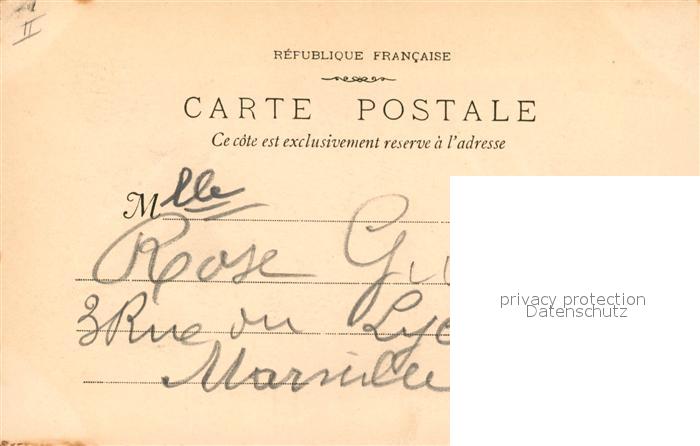 II
RÉFUBLIQUE FRANÇAISE
CARTE POSTALE
Ce côte est exclusivement reserve à l'adresse
Mlle
Rose
3 Rue du
Marseille
privacy protection
Datenschutz